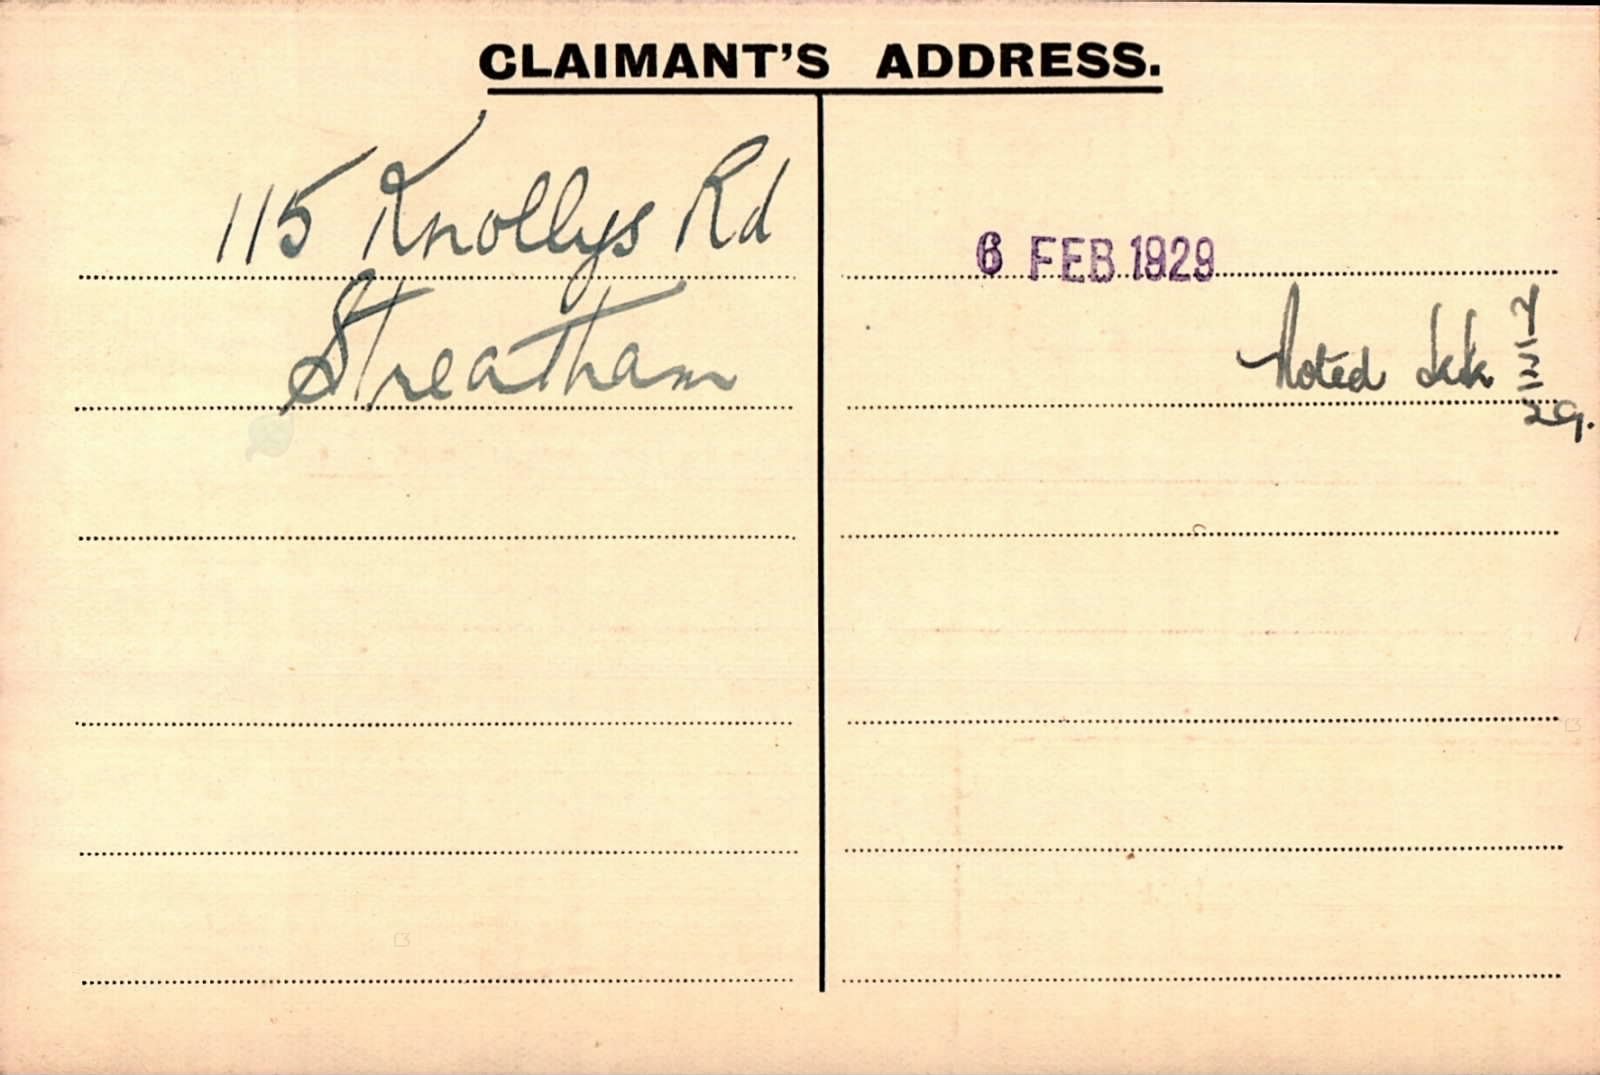 CLAIMANT'S ADDRESS.
115 Knollys Rd
Streatham
6 FEB 1929
Noted
29.